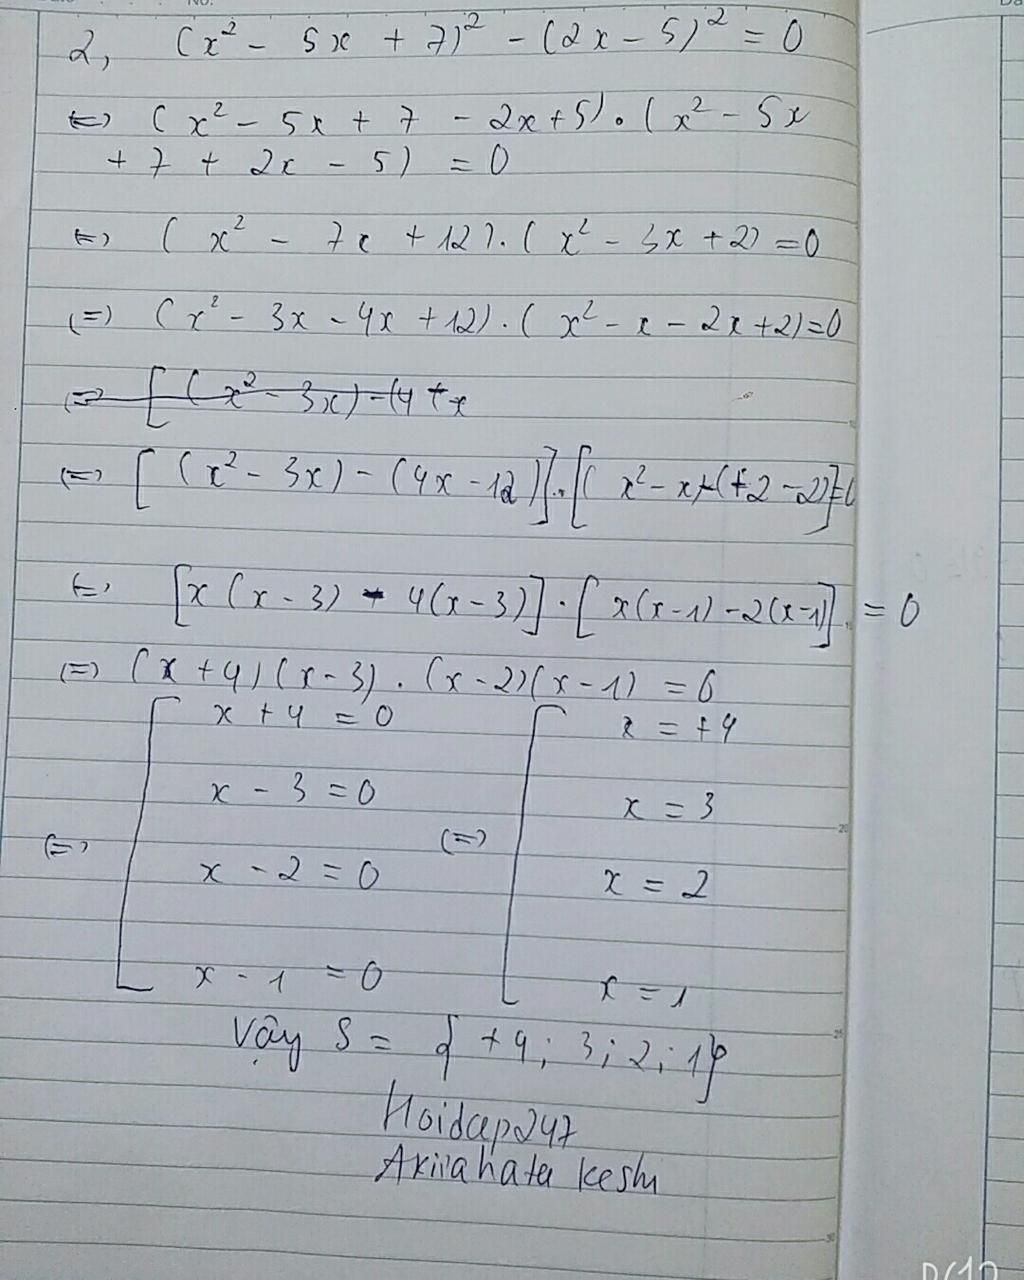 No.
2, (x² - 5x + 7)² - (2x - 5)² = 0
<=> (x² - 5x + 7 - 2x + 5) . (x² - 5x
+ 7 + 2x - 5) = 0
<=> (x² - 7x + 12) . (x² - 3x + 2) = 0
<=> (x² - 3x - 4x + 12) . (x² - x - 2x + 2) = 0
<=> [(x² - 3x) - (4 + x
<=> [(x² - 3x) - (4x - 12)] . [(x² - x) - (+2 - 2)] = 0
<=> [x(x - 3) - 4(x - 3)] . [x(x - 1) - 2(x - 1)] = 0
<=> (x + 4)(x - 3) . (x - 2)(x - 1) = 0
x + 4 = 0 x = +4
x - 3 = 0 x = 3
<=> x - 2 = 0 <=> x = 2
x - 1 = 0 x = 1
Vậy S = {+4; 3; 2; 1}
Hoidap247
Akirahata keshi